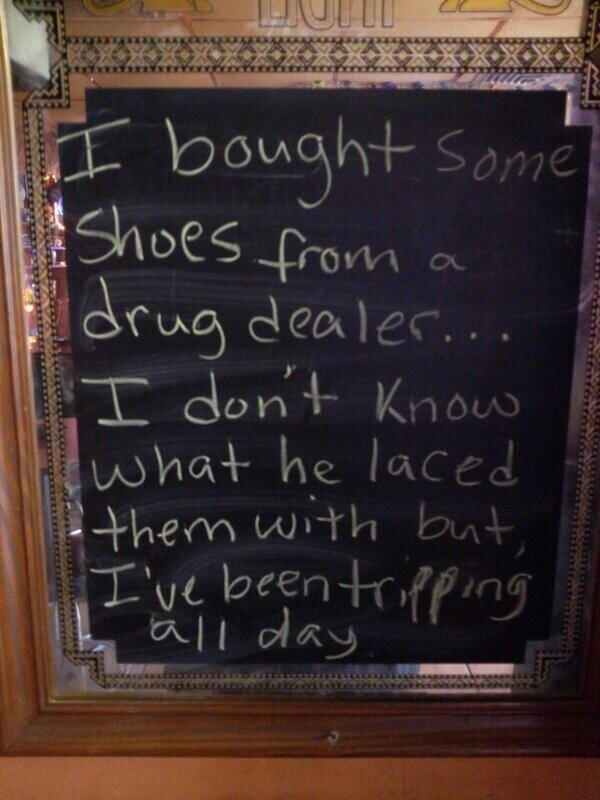 I bought some
shoes from a
drug dealer...
I don't know
what he laced
them with but,
I've been tripping
all day